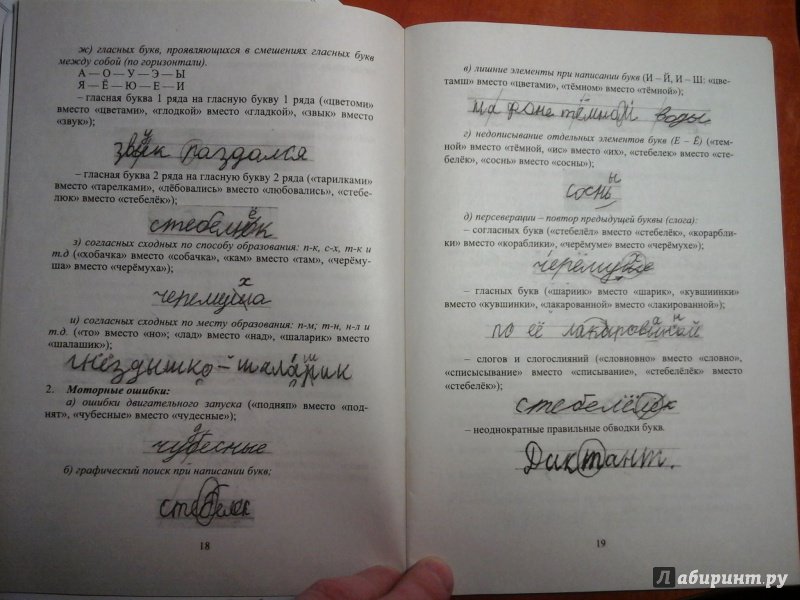 ж) гласных букв, проявляющихся в смешениях гласных букв
между собой (по горизонтали).
А — О — У — Э — Ы
Я — Ё — Ю — Е — И
– гласная буква 1 ряда на гласную букву 1 ряда («цветоми»
вместо «цветами», «глодкой» вместо «гладкой», «звык» вместо
«звук»);
у
звык раздался
– гласная буква 2 ряда на гласную букву 2 ряда («тарилками»
вместо «тарелками», «лёбовались» вместо «любовались», «стебе-
люк» вместо «стебелёк»);
ё
стебелюк
з) согласных сходных по способу образования: п-к, с-х, т-к и
т.д («хобачка» вместо «собачка», «кам» вместо «там», «черёму-
ша» вместо «черёмуха»);
х
черемуша
и) согласных сходных по месту образования: п-м; т-н, н-л и
т.д. («то» вместо «но»; «лад» вместо «над», «шаларик» вместо
«шалашик»);
ш
гнёздышко – шаларик
2. Моторные ошибки:
а) ошибки двигательного запуска («подняп» вместо «под-
нят», «чубесные» вместо «чудесные»);
д
чубесные
б) графический поиск при написании букв;
стебелек
18
в) лишние элементы при написании букв (И – Й, И – Ш: «цве-
тамш» вместо «цветами», «тёмном» вместо «тёмной»);
на фоне тёмной воды
г) недописывание отдельных элементов букв (Е – Ё) («тем-
ной» вместо «тёмной, «ис» вместо «их», «стебелек» вместо «сте-
белёк», «соснь» вместо «сосны»);
ы
соснь
д) персеверации – повтор предыдущей буквы (слога):
– согласных букв («стебелёл» вместо «стебелёк», «корарбли-
ки» вместо «кораблики», «черёмуме» вместо «черёмухе»);
черёму е
– гласных букв («шариик» вместо «шарик», «кувшиинки»
вместо «кувшинки», «лакарованной» вместо «лакированной»);
а н
по её лакировиной
– слогов и слогослияний («словновно» вместо «словно»,
«списысывание» вместо «списывание», «стебелёлёк» вместо
«стебелёк»);
стебелёлёк
– неоднократные правильные обводки букв.
Диктант.
19
Лабиринт.ру